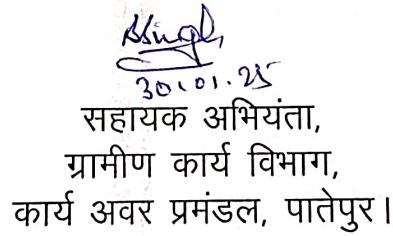 BSingh
30.01.25
सहायक अभियंता,
ग्रामीण कार्य विभाग,
कार्य अवर प्रमंडल, पातेपुर।